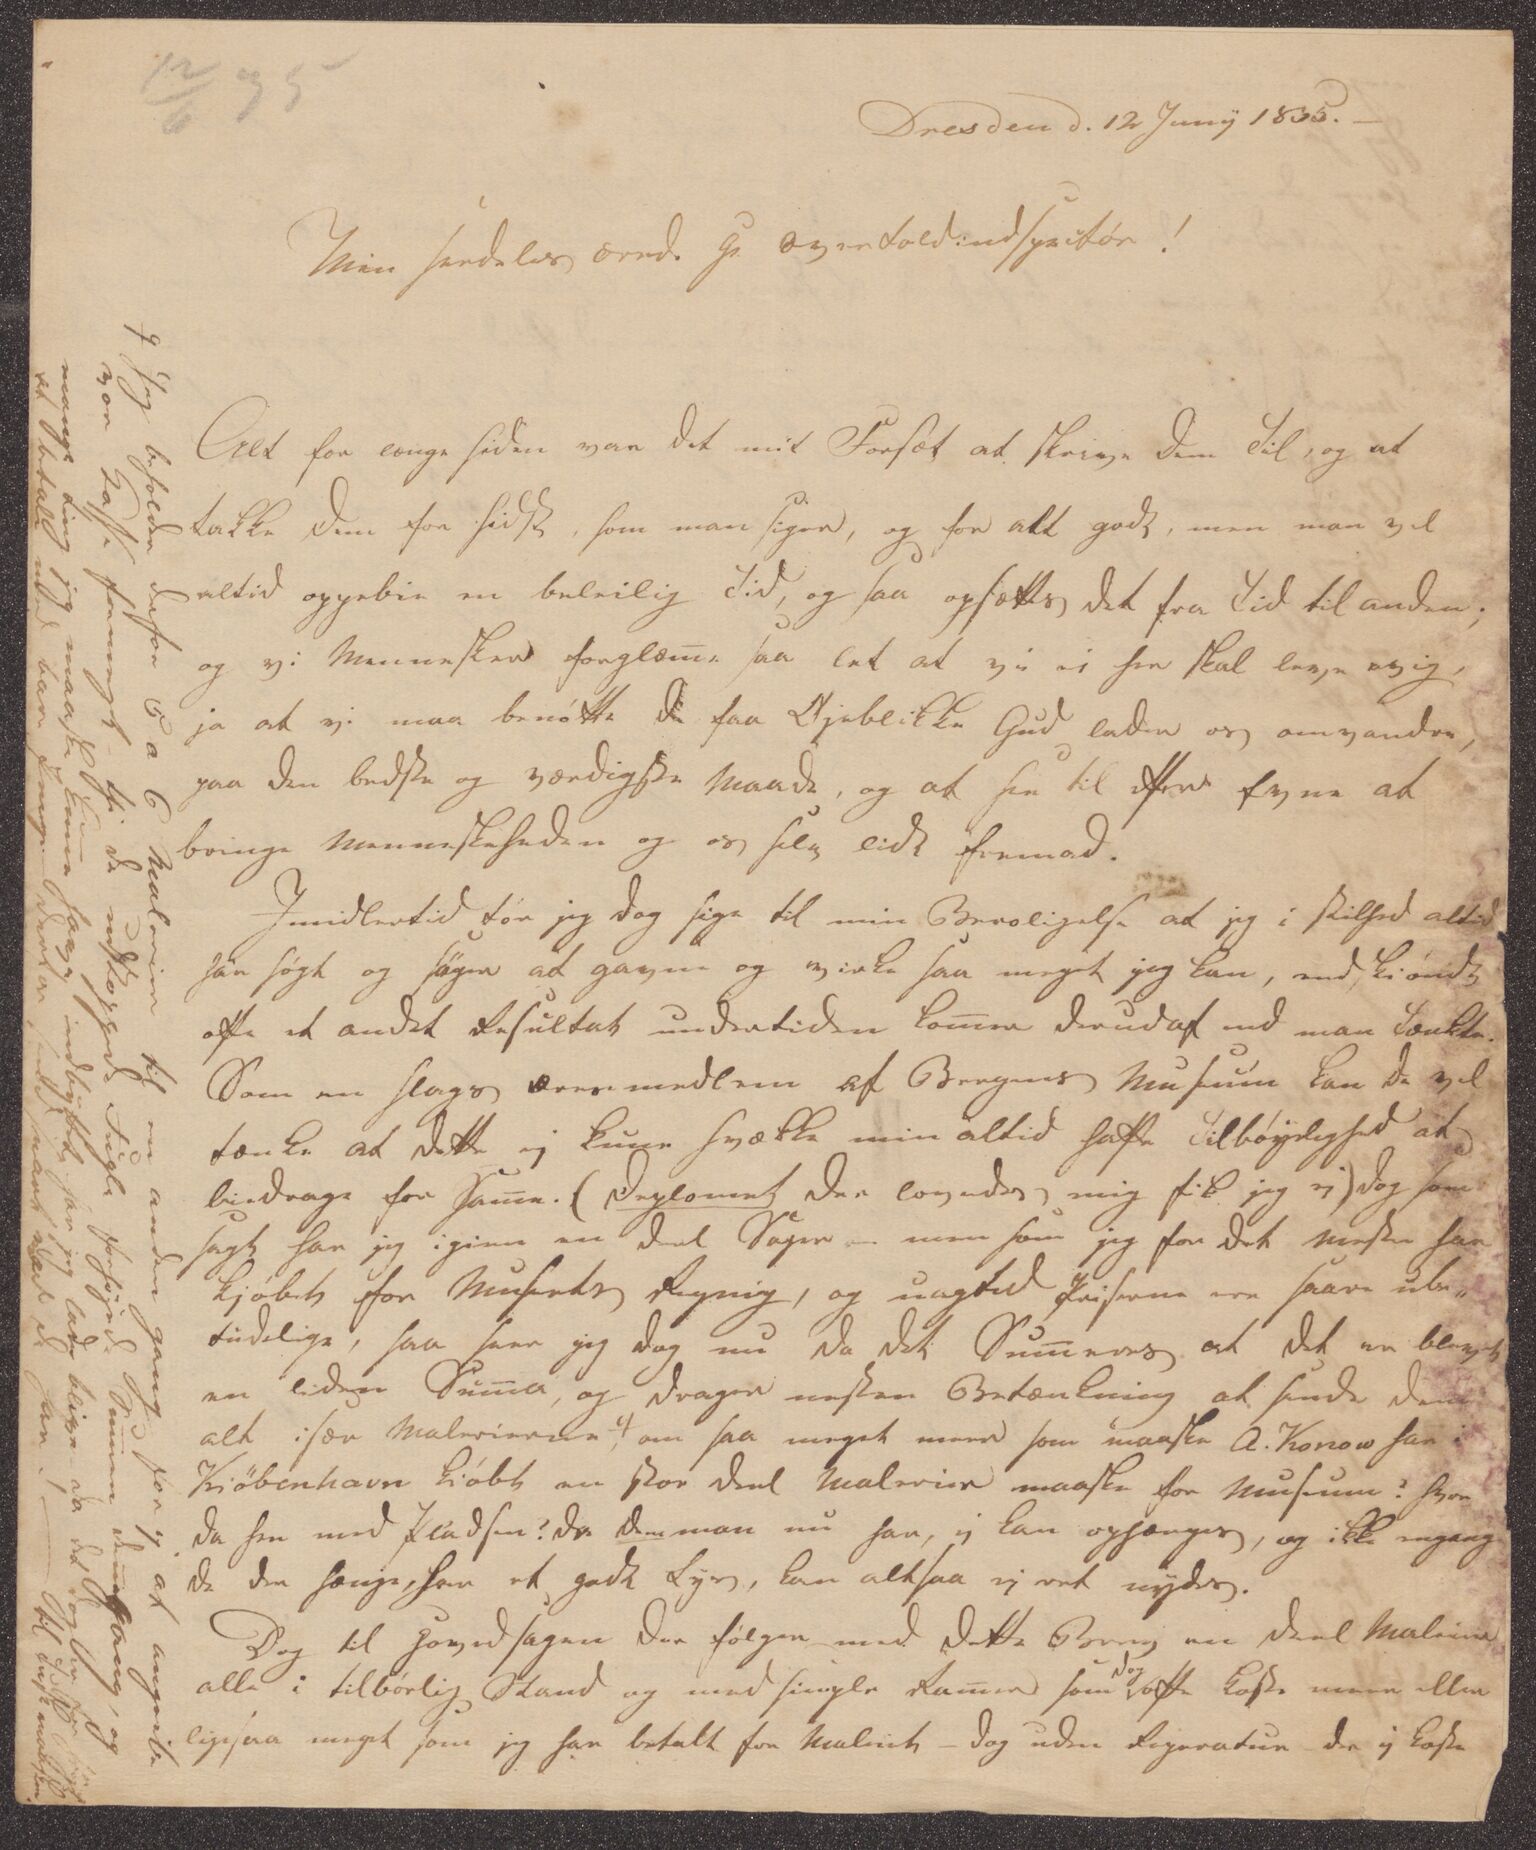 12/6 35
Dresden d. 12 Juny 1835. —
Min særdeles ærede Hr Overtoldindspektör!
Alt for længe siden var det mit Forsæt at skrive Dem Til, og at
takke Dem for sidst, som man siger, og for alt godt, men man vil
altid oppebie en beleilig Tid, og saa opsættes det fra Tid til anden;
og vi Mennesker forglem̅e saa let at vi ei her skal leve evig,
ja at vi maa benötte de faa Øjeblikke Gud lader os omvandre,
paa den bedste og værdigste Maade, og at see til efter Evne at
bringe Menneskeheden og os selv lidt fremad.
Imidlertid tör jeg dog sige til min Beroligelse at jeg i stilhed altid
har sögt og söger at gavne og virke saa meget jeg kan, endskiöndt
ofte et andet Resultat undertiden kom̅er derudaf end man Tænkte.
Som en slags æresmedlem af Bergens Museum kan De vel
tænke at dette ej kune svække min altid hafte Tilböyelighed at
bidrage for Sam̅e. (Deplomet der lovedes mig fik jeg ej) dog som
sagt har jeg igien en deel Sager — men som jeg for det meste har
kjöbt for Museets Regnig, og uagted Priserne ere saare ube„
tüdelige, saa seer jeg dog nu da det Sum̅eres at det er blevet
en liden Sum̅a, og drager næsten Betænkning at sende dem
alt især Malerierne, om saa meget meer som maaske A. Konow har i
Kiöbenhavn kiöbt en stor deel Malerier maaske for Museum? hvor
da hen med Pladsen? da dem man nu har, ej kan ophænges, og ikke engang
de der hænge, har et godt Lys, kan altsaa ej ret nydes.
Dog til Hovedsagen der fölger med dette Brev en deel Malerier
alle i tilbörlig Stand og med simple Ram̅er som dog ofte koste meer eller
ligesaa meget som jeg har betalt for Maleriet — dog uden Reperatur der ej koste
Jeg beholder derfor 5 a 6 Malerier til en anden gang for ej at angribe
vor Kasse formeget — thi de udstoppede Fugle forhöjede Sum̅en den̅egang, og
mange ting jeg maaske kun̅e have indbyttet har jeg ladet blive, da det dog
at betale med bare Penge